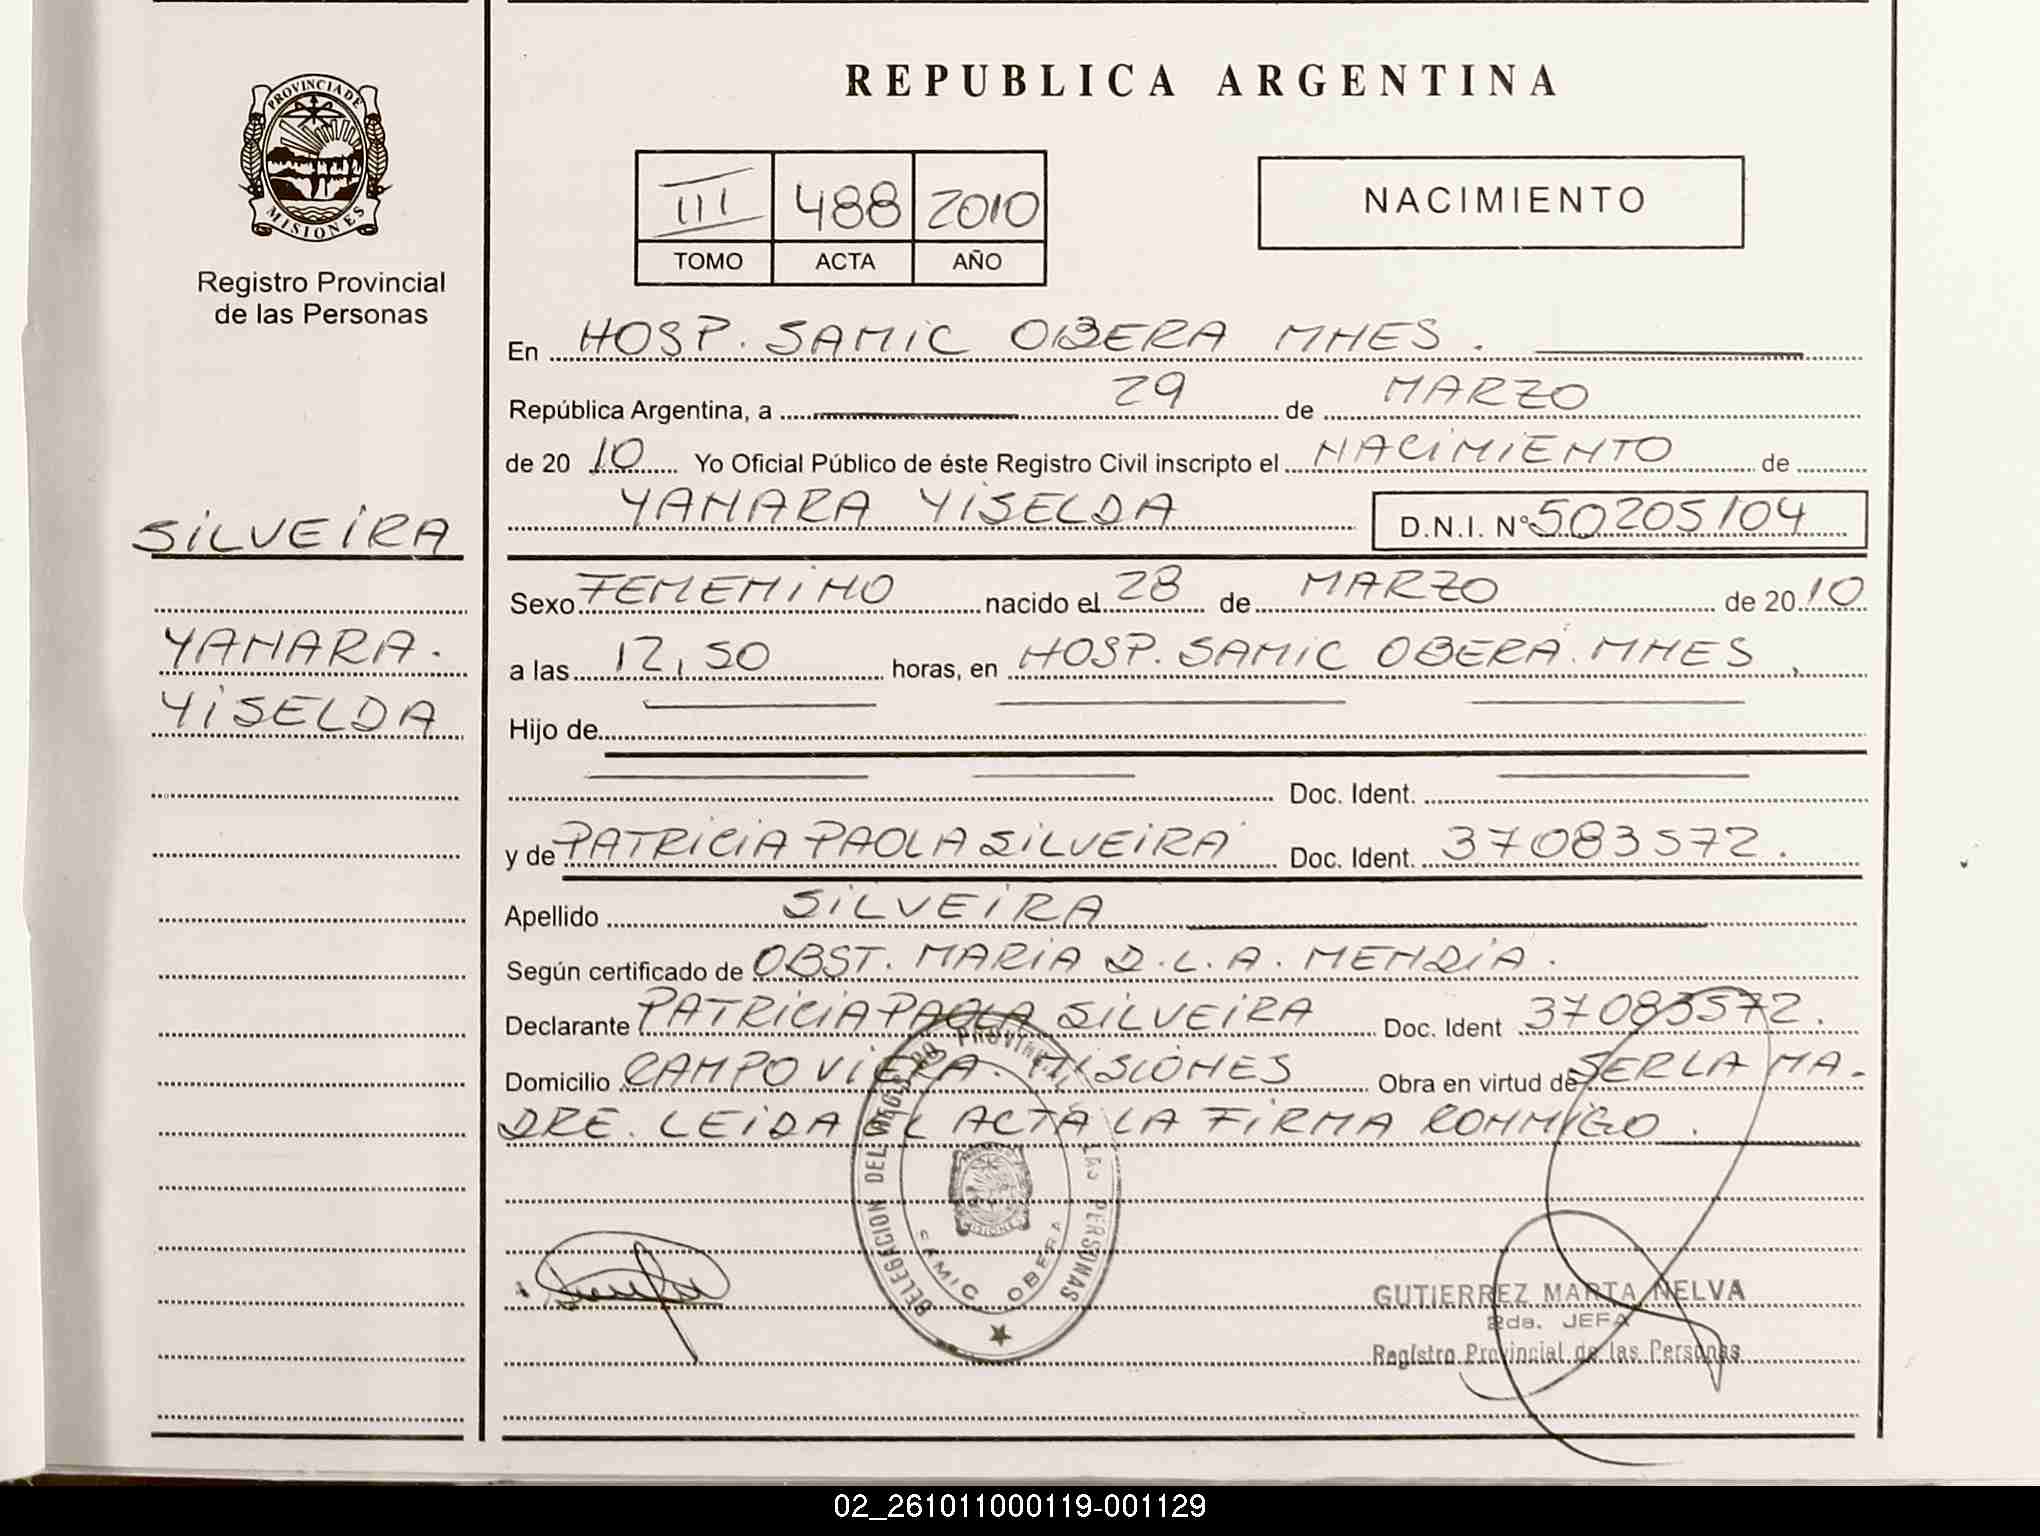 PROVINCIA DE
MISIONES
Registro Provincial
de las Personas
SILVEIRA
YANARA.
YISELDA
REPUBLICA ARGENTINA
III 488 2010
TOMO ACTA AÑO
NACIMIENTO
En HOSP. SAMIC OBERA MNES.
República Argentina, a 29 de MARZO
de 20 10 Yo Oficial Público de éste Registro Civil inscripto el NACIMIENTO de
YANARA YISELDA D.N.I. N° 50205104
Sexo FEMENINO nacido el 28 de MARZO de 20 10
a las 12,50 horas, en HOSP. SAMIC OBERA. MNES.
Hijo de
Doc. Ident.
y de PATRICIA PAOLA SILVEIRA Doc. Ident. 37083572.
Apellido SILVEIRA
Según certificado de OBST. MARIA D.L.A. MENDIA.
Declarante PATRICIA PAOLA SILVEIRA Doc. Ident 37083572.
Domicilio CAMPO VIERA. MISIONES Obra en virtud de SER LA MA-
DRE. LEIDA EL ACTA LA FIRMA CONMIGO.
DELEGACION DEL REGISTRO PROVINCIAL DE LAS PERSONAS
SAMIC OBERA
GUTIERREZ MARTA NELVA
2da. JEFA
Registro Provincial de las Personas
02_261011000119-001129